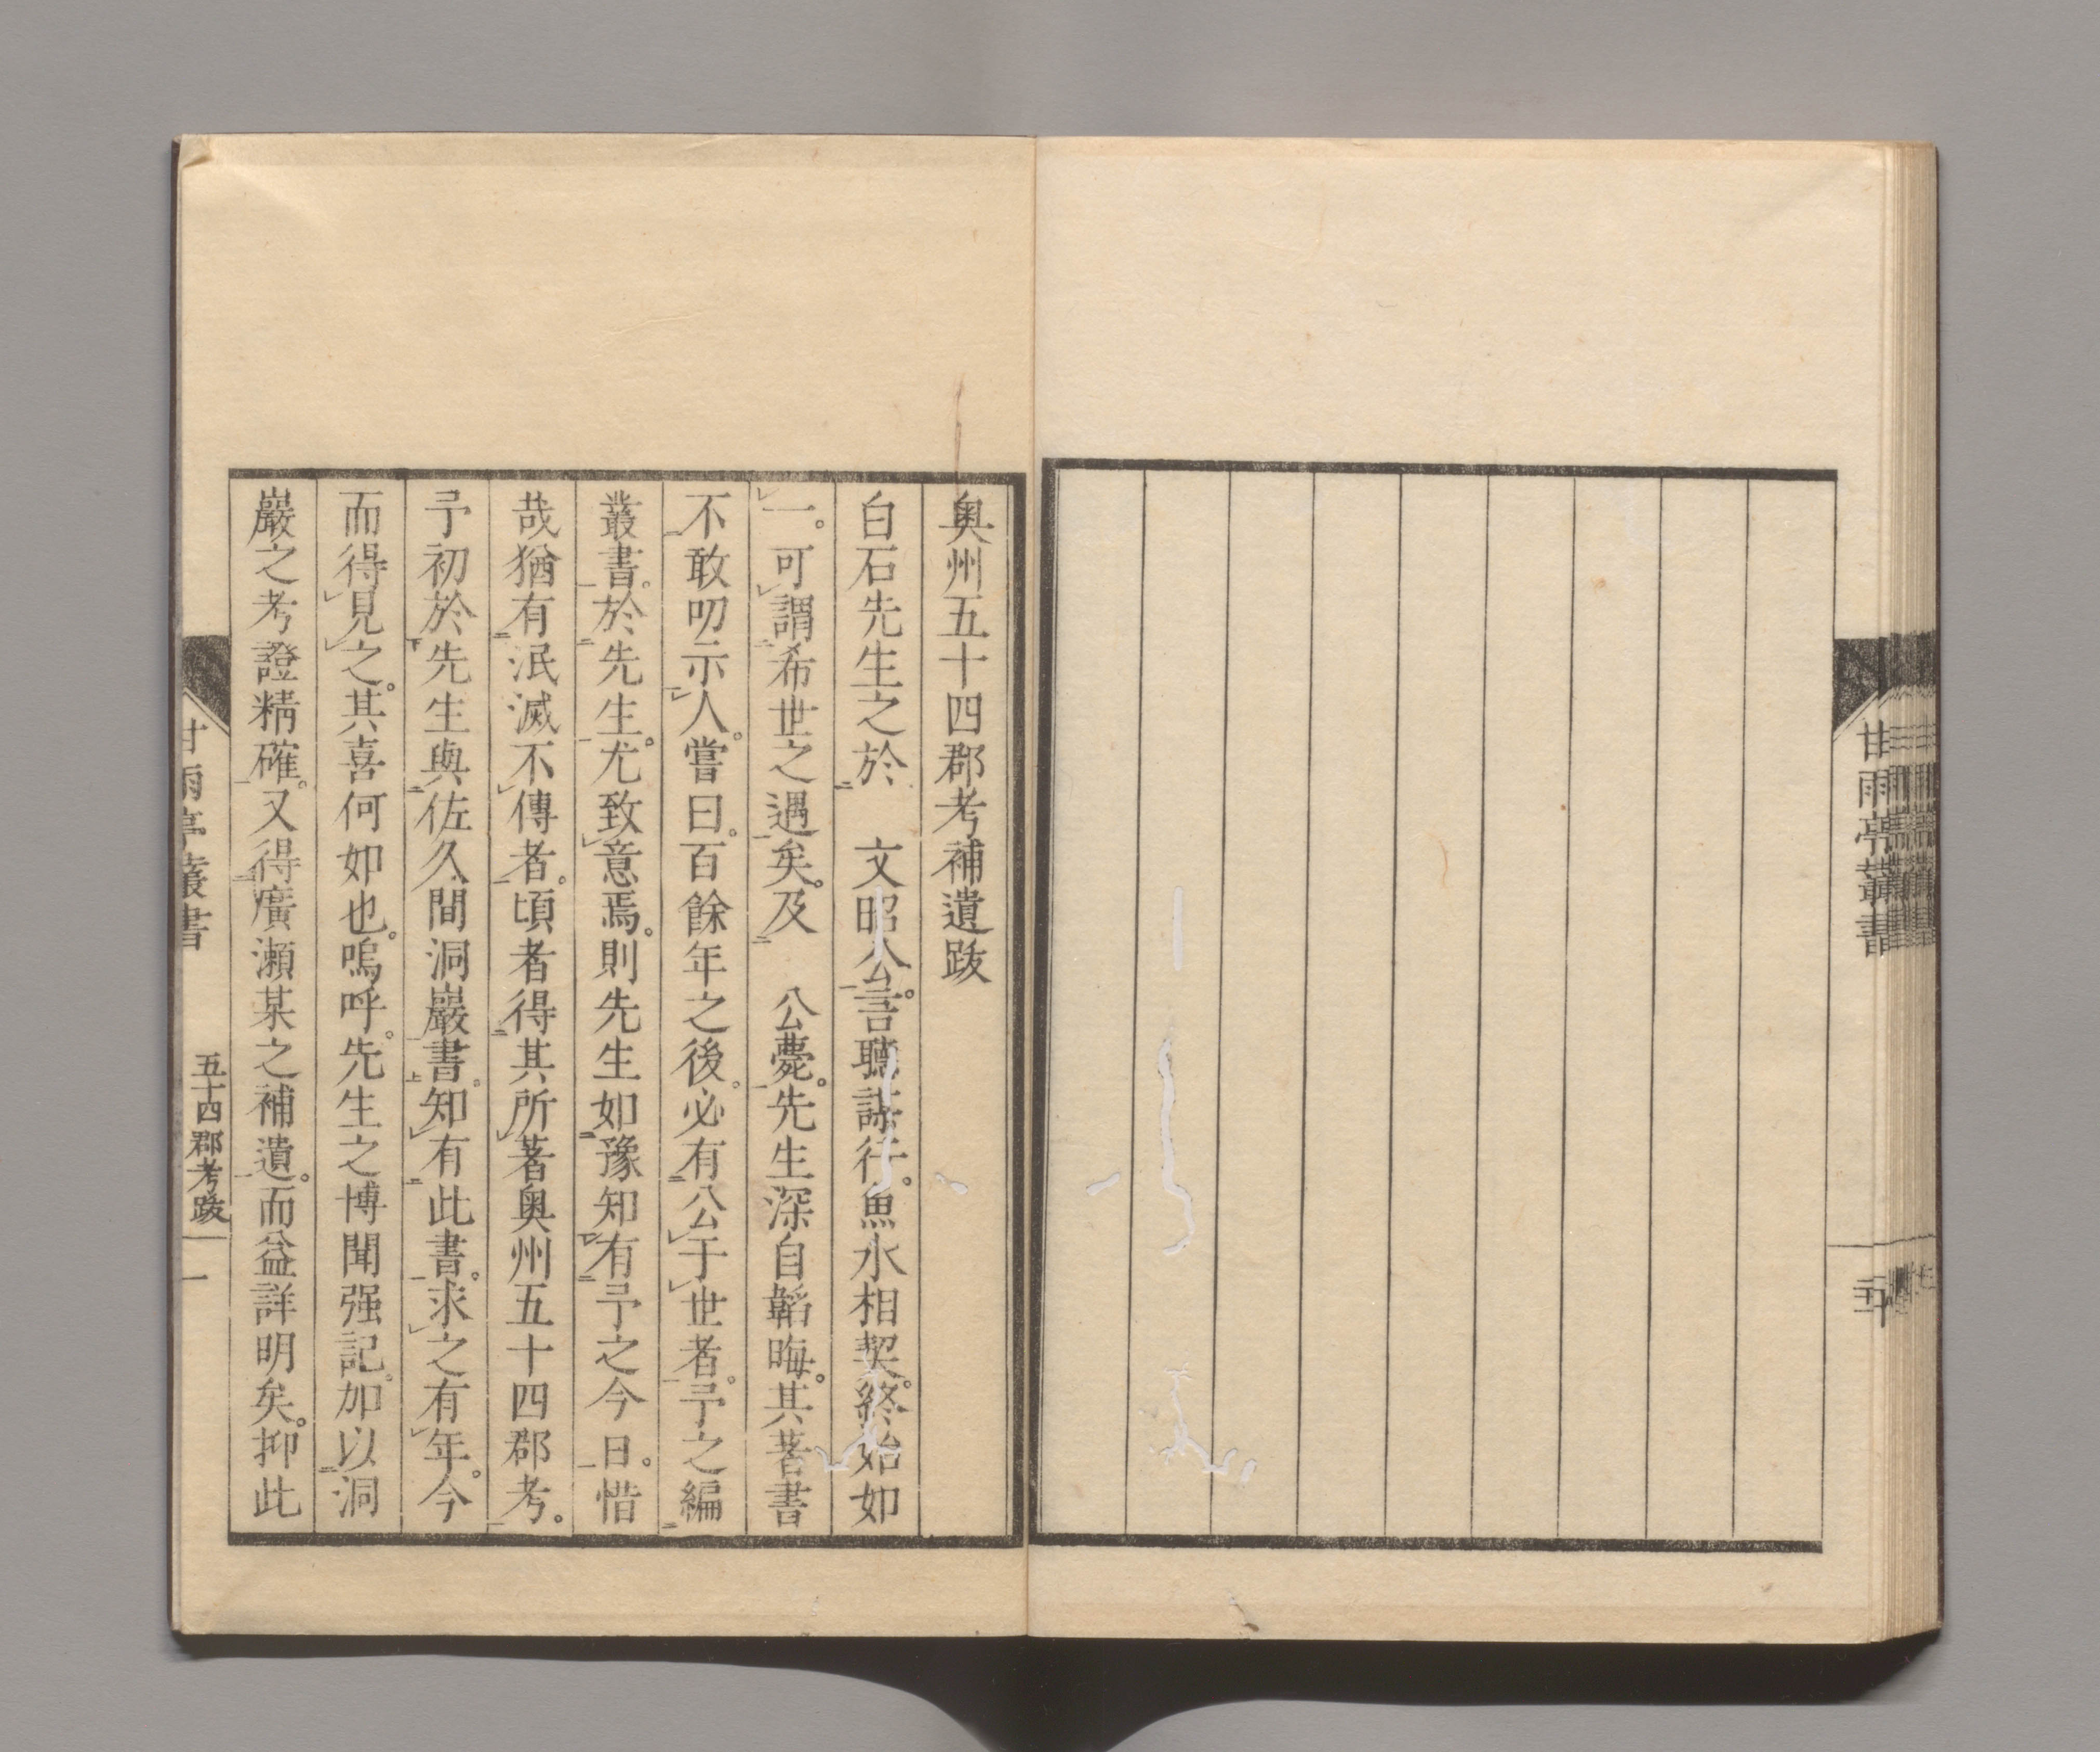 甘雨亭叢書
奥州五十四郡考補遺跋
白石先生之於　文昭公。言聽諫行。魚水相契。終始如
一。可謂希世之遇矣。及　公薨。先生深自韜晦。其著書
不敢叨示人。嘗曰。百餘年之後。必有公于世者。予之編
叢書。於先生。尤致意焉。則先生如豫知有予之今日。惜
哉猶有泯滅不傳者。頃者得其所著奥州五十四郡考。
予初於先生與佐久間洞巖書。知有此書。求之有年。今
而得見之。其喜何如也。嗚呼。先生之博聞强記。加以洞
巖之考證精確。又得廣瀬某之補遺。而益詳明矣。抑此
甘雨亭叢書　五十四郡考跋　一